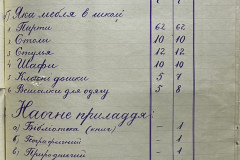 Яки мебля в школі
1 Парти 62 62
2 Столи 10 10
3 Стулья 12 12
4 Шафи 10 10
5 Класні дошки 5 7
6 Вешалки для одягу 5 8
Наочне приладдя:
а) Бібліотека (книг) - 1
б) Географичний - 1
в) Природничий - 1